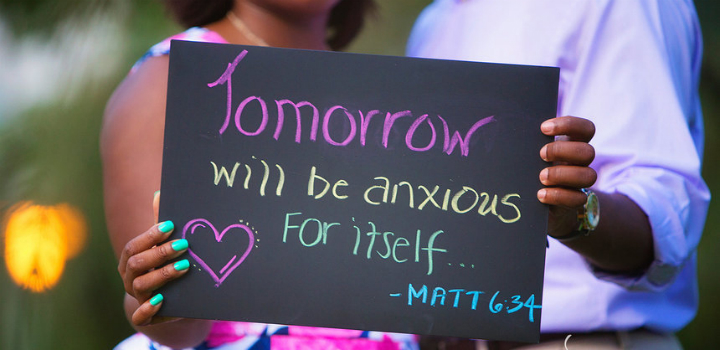 Tomorrow
will be anxious
For itself...
- MATT 6:34